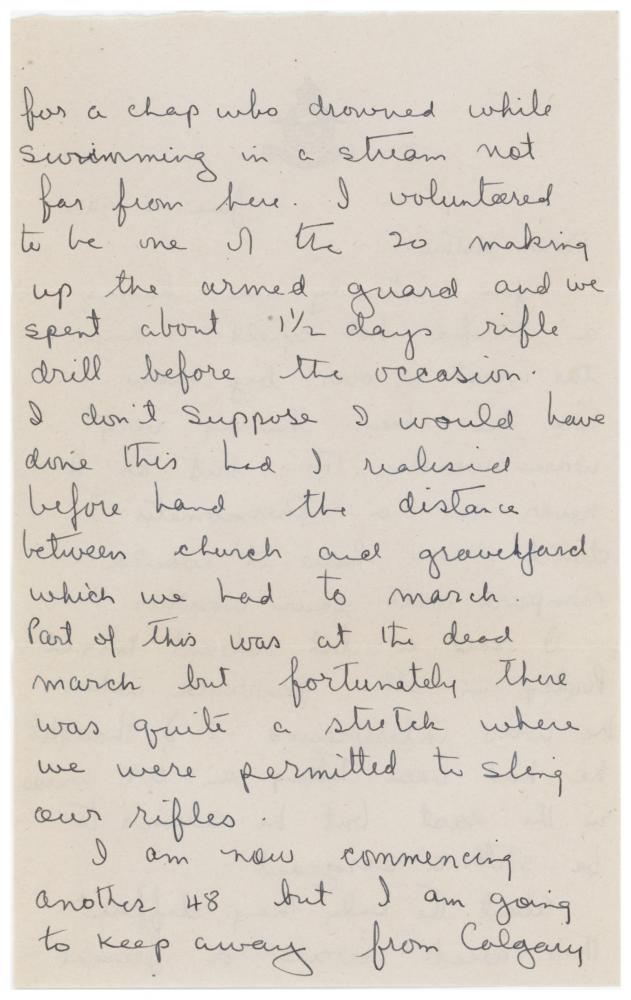 for a chap who drowned while
swimming in a stream not
far from here. I volunteered
to be one of the 20 making
up the armed guard and we
spent about 1½ days rifle
drill before the occasion.
I don't suppose I would have
done this had I realised
before hand the distance
between church and graveyard
which we had to march.
Part of this was at the dead
march but fortunately there
was quite a stretch where
we were permitted to sling
our rifles.
I am now commencing
another 48 but I am going
to keep away from Calgary